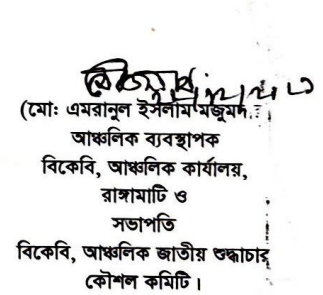 (মো: এমরানুল ইসলাম মজুমদার)
আঞ্চলিক ব্যবস্থাপক
বিকেবি, আঞ্চলিক কার্যালয়,
রাঙ্গামাটি ও
সভাপতি
বিকেবি, আঞ্চলিক জাতীয় শুদ্ধাচার
কৌশল কমিটি।